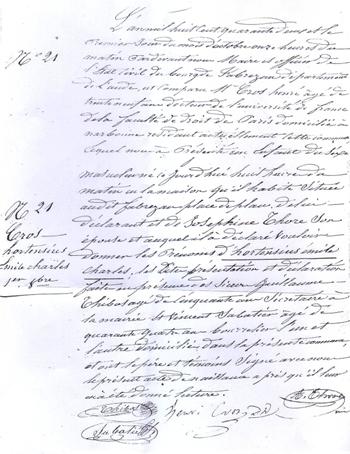 L'an mil huit cent quarante deux et le
premier jour du mois d'octobre onze heures du
matin Pardevant nous Maire et officier de
l'Etat Civil du bourg de Fabrezan département
de l'aude, est comparu Mr Cros henri âgé de
trente neuf ans docteur de l'université de france
de la faculté de droit de Paris domicilié à
narbonne résidant actuellement cette commune
lequel nous a Présenté un Enfant du Sexe
masculin né ce jourd'hui huit heures du
matin en la maison qu'il habite Située
audit fabrezan place de place, de lui
déclarant et de Josephine Thore Son
épouse et auquel il a déclaré vouloir
donner les Prénoms d'hortensius émile
charles, les dites présentation et déclaration
faites en présence de Sieur Guillaume
Thibos âgé de cinquante ans Secrétaire à
la mairie et Vincent Sabatier âgé de
quarante quatre ans bourrelier l'un et
l'autre domiciliés dans la présente commune
et ont le père et témoins Signé avec nous
le présent acte de naissance après qu'il leur
en a été donné lecture.
No 21
No 21
Cros
hortensius
émile charles
1er 8bre
henri Cros
Sabatier